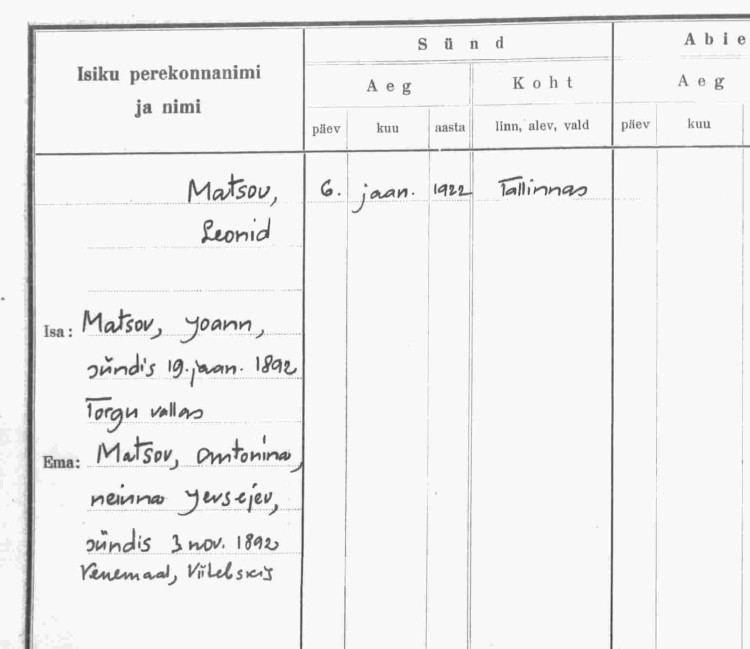 Isiku perekonnanimi
ja nimi
Sünd
Abie
Aeg
Koht
Aeg
päev
kuu
aasta
linn, alev, vald
päev
kuu
Matsov, 6. jaan. 1922 Tallinnas
Leonid
Isa: Matsov, Joann,
sündis 19. jaan. 1892
Torgu vallas
Ema: Matsov, Antonina,
neinna Jevsejev,
sündis 3 nov. 1892
Venemaal, Vitebskis